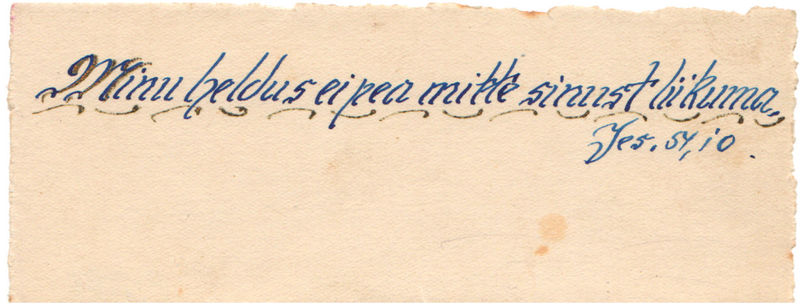 Minu heldus ei pea mitte sinust liikuma,
Jes. 54,10.